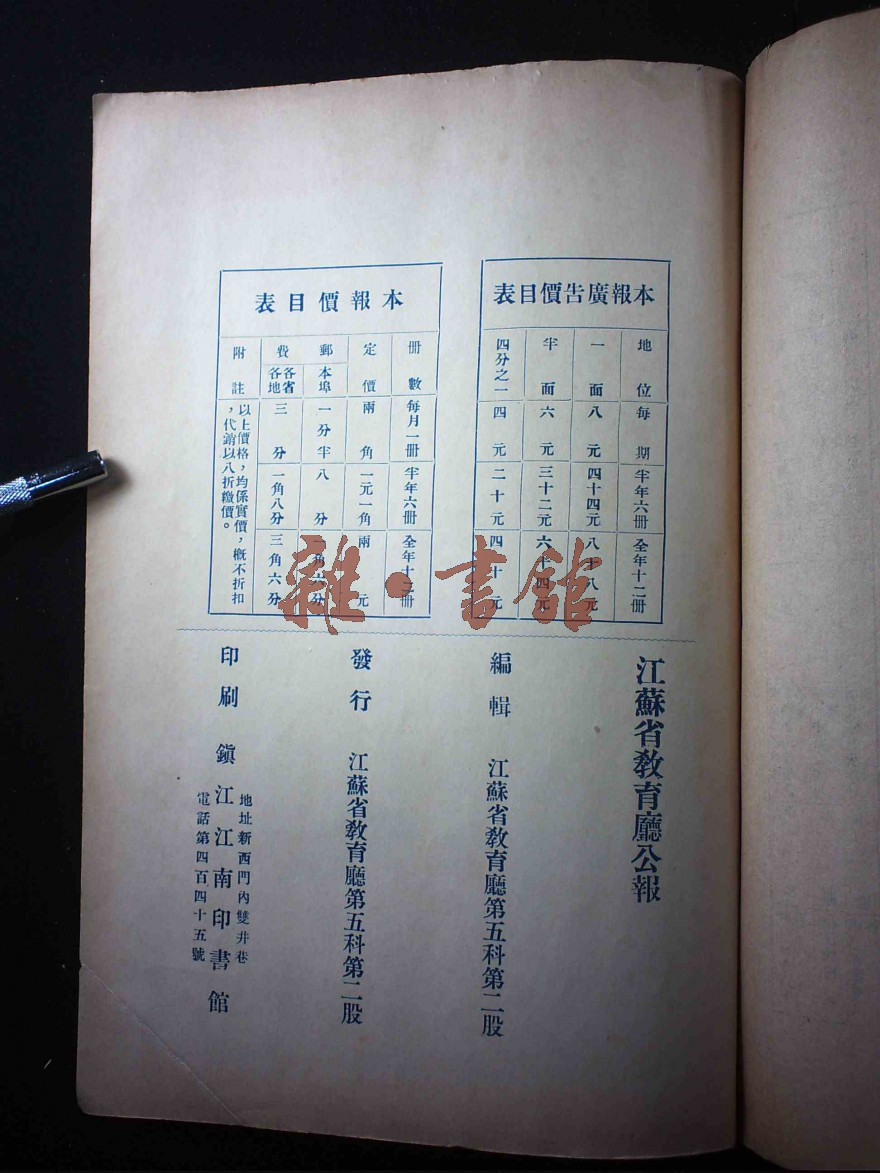 本報廣告價目表
地位 每期 半年六冊 全年十二冊
一面 八元 四十四元 八十八元
半面 六元 三十二元 六十四元
四分之一 四元 二十元 四十元
本報價目表
冊數 每月一冊 半年六冊 全年十二冊
定價 兩角 一元一角 兩元
郵費
本埠 一分半 八分 一角六分
各省各地 三分 一角八分 三角六分
附註 以上價格，均係實價，概不折扣
，代銷以八折繳價。
雜·書館
江蘇省教育廳公報
編輯 江蘇省教育廳第五科第二股
發行 江蘇省教育廳第五科第二股
印刷 鎮江江南印書館
地址新西門內雙井巷
電話第四百四十五號